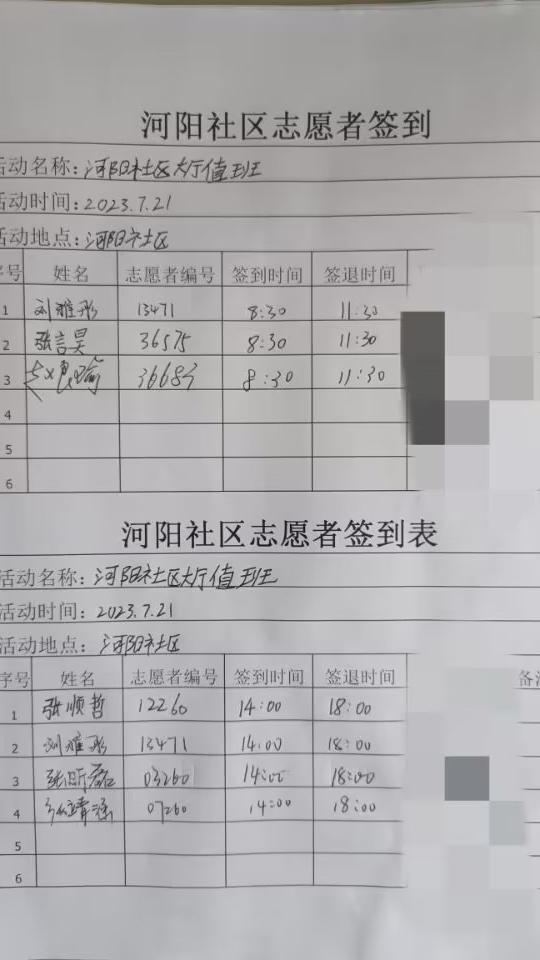 河阳社区志愿者签到
活动名称：河阳社区大厅值班
活动时间：2023.7.21
活动地点：河阳社区
序号 姓名 志愿者编号 签到时间 签退时间
1 刘雅彤 13471 8:30 11:30
2 张言昊 36575 8:30 11:30
3 36683 8:30 11:30
4
5
6
河阳社区志愿者签到表
活动名称：河阳社区大厅值班
活动时间：2023.7.21
活动地点：河阳社区
序号 姓名 志愿者编号 签到时间 签退时间 备
1 张顺哲 12260 14:00 18:00
2 刘雅彤 13471 14:00 18:00
3 张昕磊 03260 14:00 18:00
4 07260 14:00 18:00
5
6